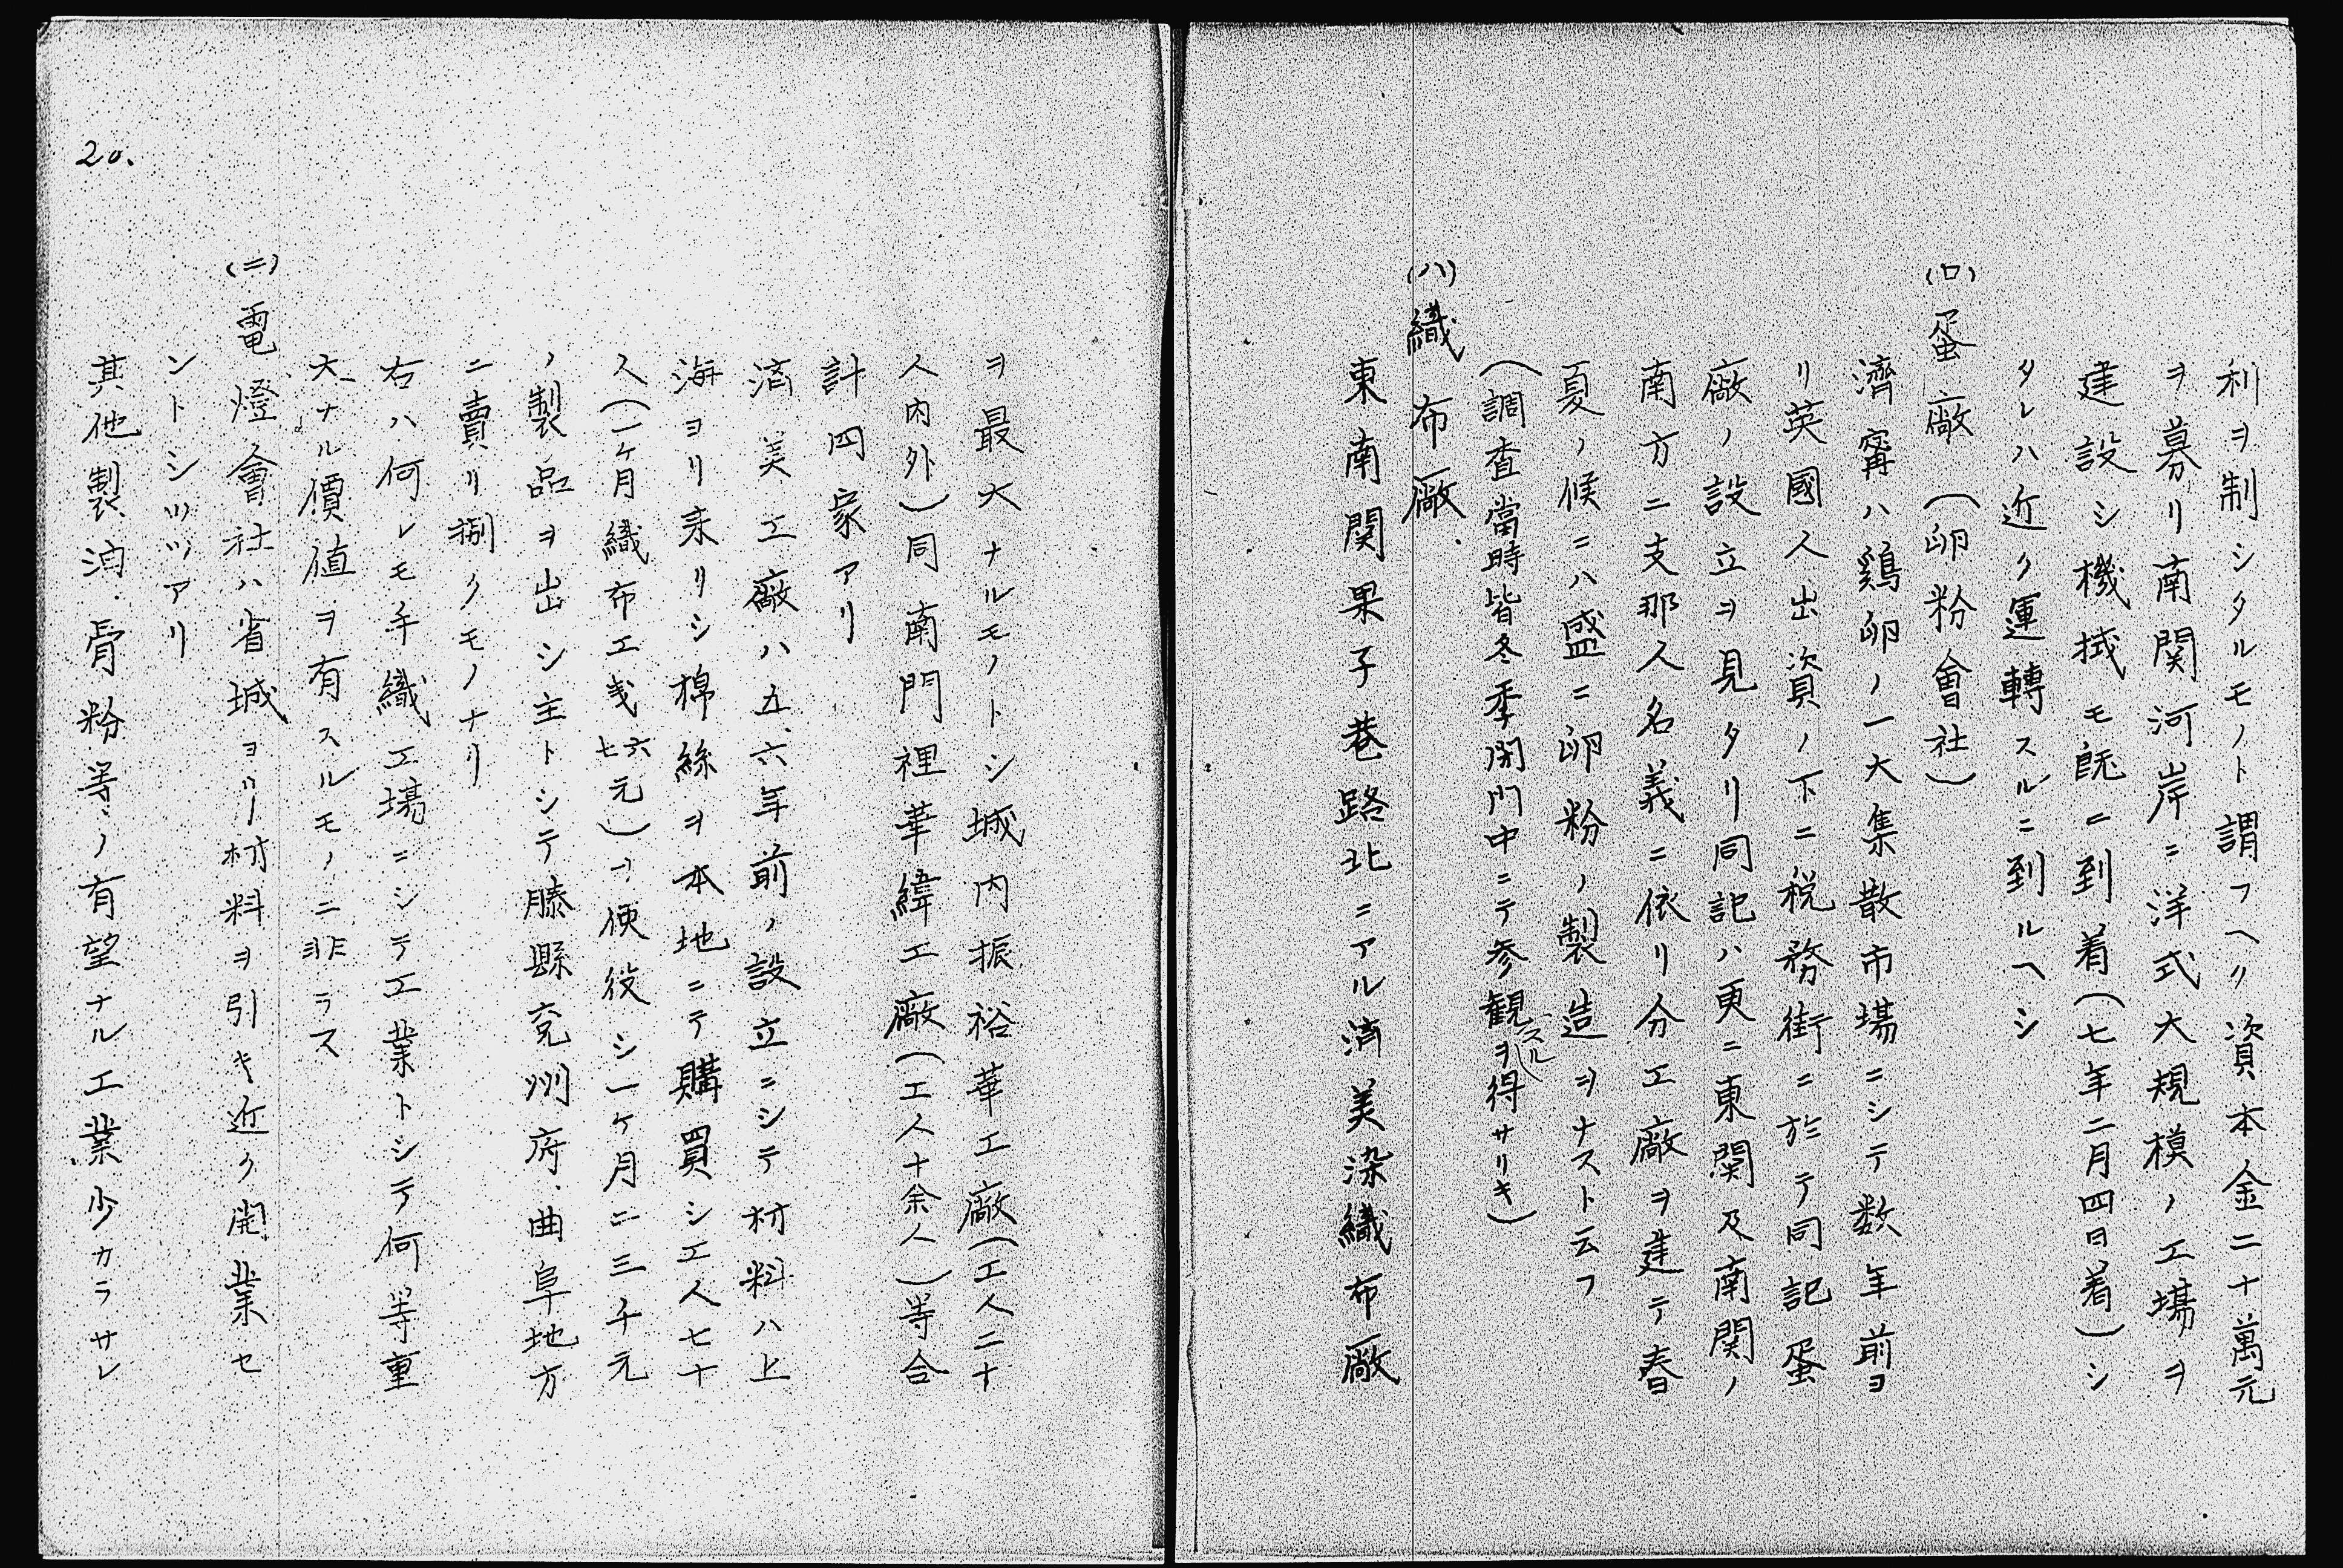 利ヲ制シタルモノト謂フヘク資本金二十萬元
ヲ募リ南関河岸ニ洋式大規模ノ工場ヲ
建設シ機械モ既ニ到着(七年二月四日着)シ
タレハ近ク運轉スルニ到ルヘシ
(ロ)蛋廠(卵粉會社)
濟寗ハ鶏卵ノ一大集散市場ニシテ数年前ヨ
リ英國人出資ノ下ニ税務街ニ於テ同記蛋
廠ノ設立ヲ見タリ同記ハ更ニ東関及南関ノ
南方ニ支那人名義ニ依リ分工廠ヲ建テ春
夏ノ候ニハ盛ニ卵粉ノ製造ヲナスト云フ
(調査當時皆冬季閉門中ニテ参観スルヲ得サリキ)
(ハ)織布廠
東南関果子巷路北ニアル済美染織布廠
ヲ最大ナルモノトシ城内振裕華工廠(工人二十
人内外)同南門裡華緯工廠(工人十余人)等合
計四家アリ
済美工廠ハ五、六年前ノ設立ニシテ材料ハ上
海ヨリ来リシ棉絲ヲ本地ニテ購買シ工人七十
人(一ヶ月織布工銭六七元)ヲ使役シ一ヶ月ニ三千元
ノ製品ヲ出シ主トシテ滕縣兗州府、曲阜地方
ニ賣リ捌クモノナリ
右ハ何レモ手織工場ニシテ工業トシテ何等重
大ナル價値ヲ有スルモノニ非ラス
(ニ)電燈會社ハ省城ヨリ材料ヲ引キ近ク開業セ
ントシツツアリ
其他製油、骨粉等ノ有望ナル工業少カラサレ
20.